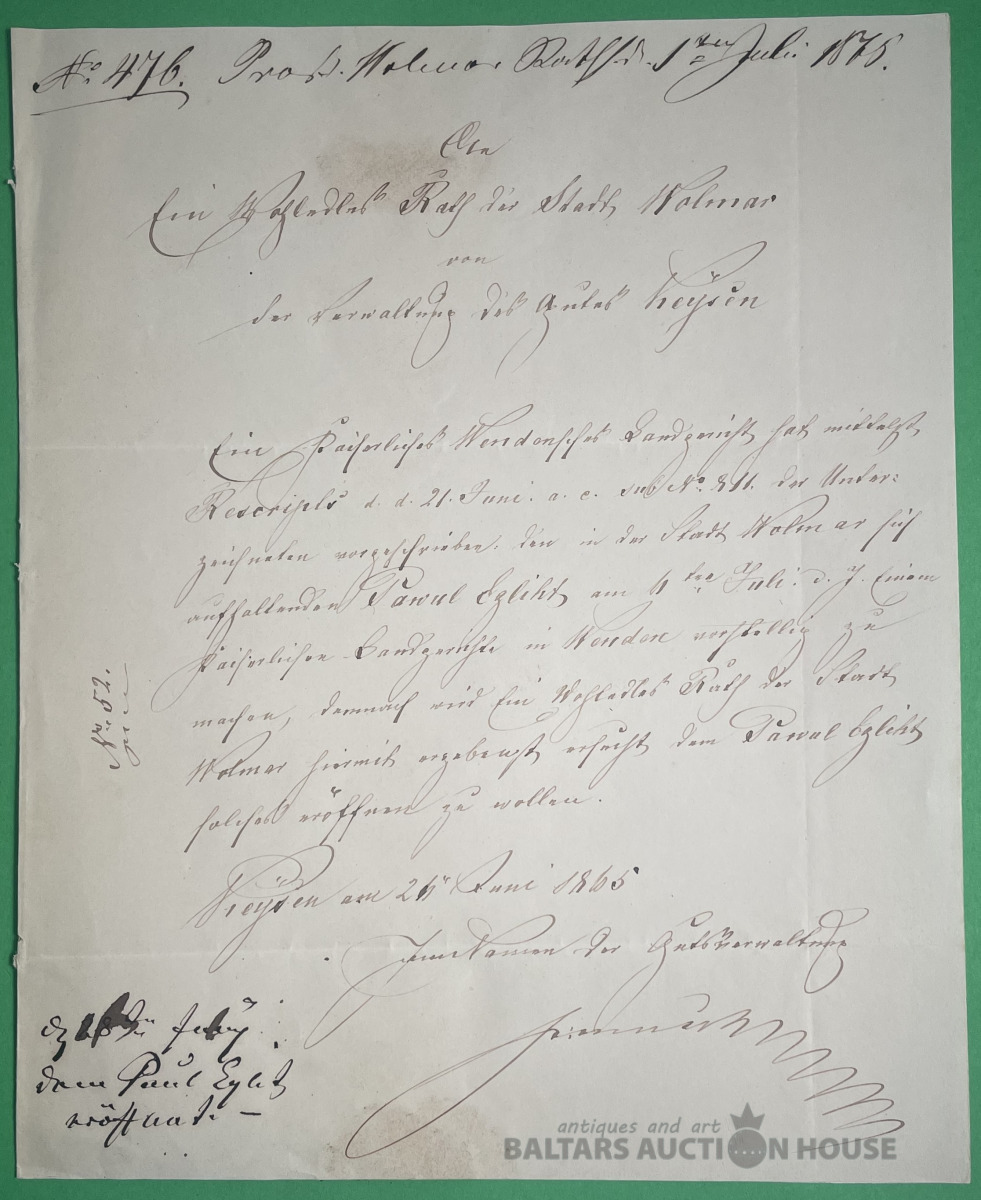 No 476. Prod. Wolmar Rathh. d. 1ten Juli 1875.
An
Ein Wohledles Rath der Stadt Wolmar
von
der Verwaltung des Gutes Keysen
Ein Kaiserliches Wendensches Landgericht hat mittelst
Rescripts d. d. 21. Juni a. c. sub No. 811. der Unter:
zeichneten vorgeschrieben, den in der Stadt Wolmar sich
aufhaltenden Pawul Egliht am 4ten Juli d. J. Einem
Kaiserlichen Landgerichte in Wenden vorstellig zu
machen, demnach wird Ein Wohledles Rath der Stadt
Wolmar hiermit ergebenst ersucht dem Pawul Egliht
solches eröffnen zu wollen.
Keysen am 24 Juni 1865
Im Namen der Gutsverwaltung
No 52.
dem Paul Eglit
eröffnet. –
antiques and art
BALTARS AUCTION HOUSE